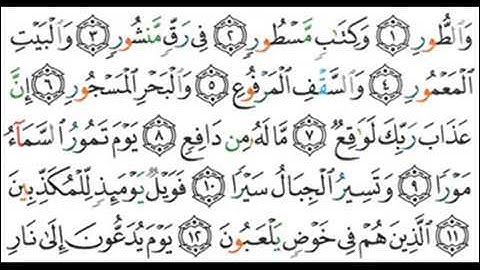 وَٱلطُّورِ ١ وَكِتَٰبٍ مَّسْطُورٍ ٢ فِى رَقٍّ مَّنشُورٍ ٣ وَٱلْبَيْتِ
ٱلْمَعْمُورِ ٤ وَٱلسَّقْفِ ٱلْمَرْفُوعِ ٥ وَٱلْبَحْرِ ٱلْمَسْجُورِ ٦ إِنَّ
عَذَابَ رَبِّكَ لَوَٰقِعٌ ٧ مَّا لَهُۥ مِن دَافِعٍ ٨ يَوْمَ تَمُورُ ٱلسَّمَآءُ
مَوْرًا ٩ وَتَسِيرُ ٱلْجِبَالُ سَيْرًا ١٠ فَوَيْلٌ يَوْمَئِذٍ لِّلْمُكَذِّبِينَ
١١ ٱلَّذِينَ هُمْ فِى خَوْضٍ يَلْعَبُونَ ١٢ يَوْمَ يُدَعُّونَ إِلَىٰ نَارِ